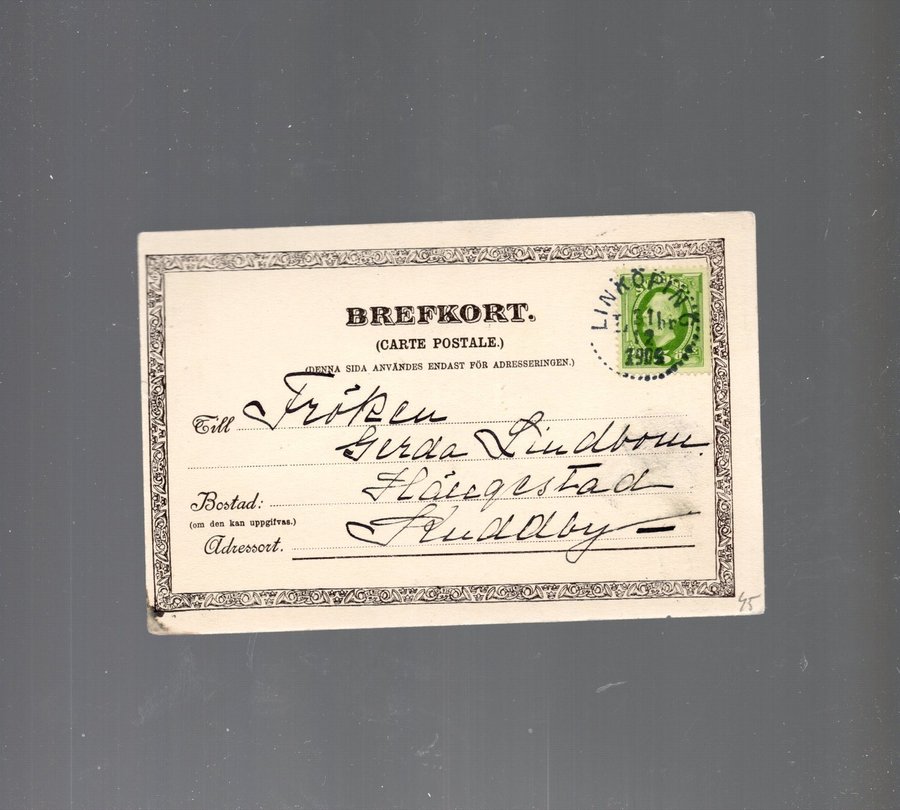 BREFKORT.
(CARTE POSTALE.)
(DENNA SIDA ANVÄNDES ENDAST FÖR ADRESSERINGEN.)
LINKÖPING
1904
Till Fröken
Gerda Lindbom.
Bostad:
(om den kan uppgifvas.)
Adressort. Kuddby
45